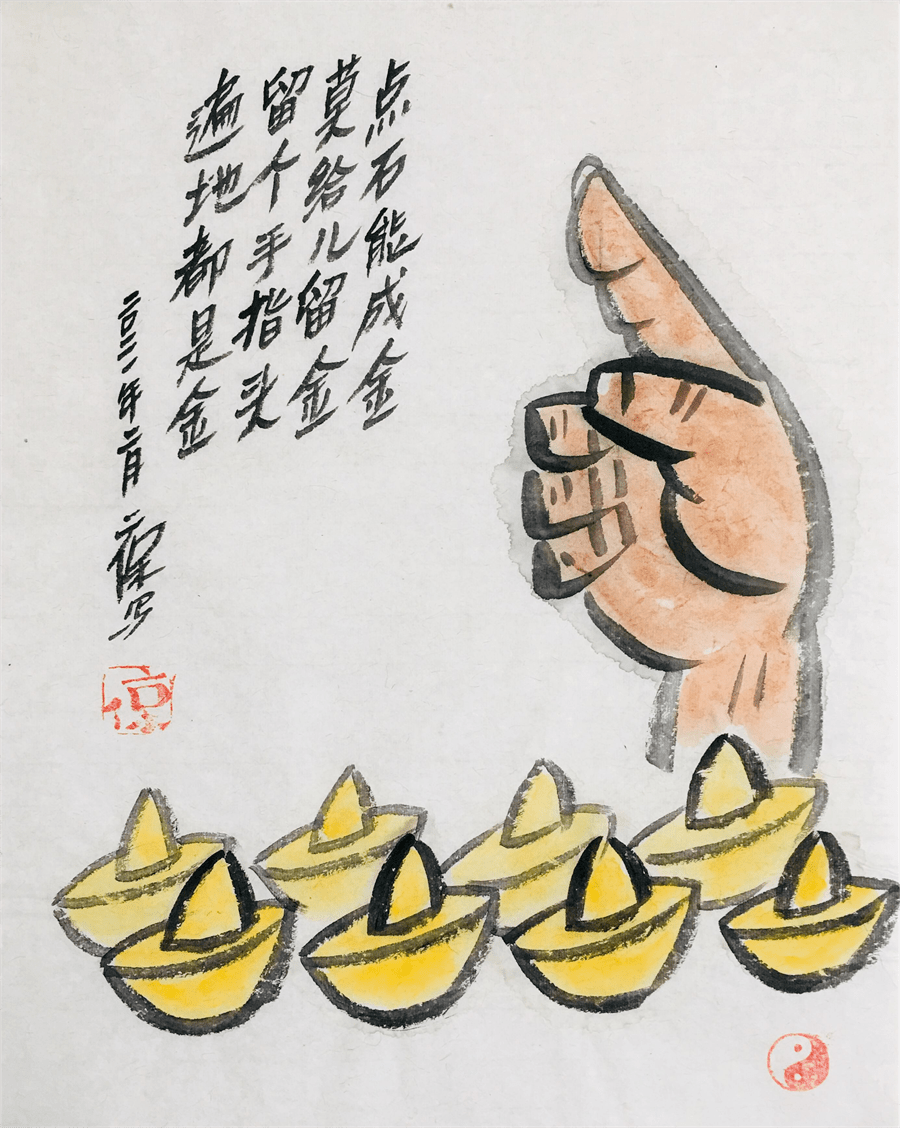 点石能成金
莫给儿留金
留个手指头
遍地都是金
二〇二一年二月
保写